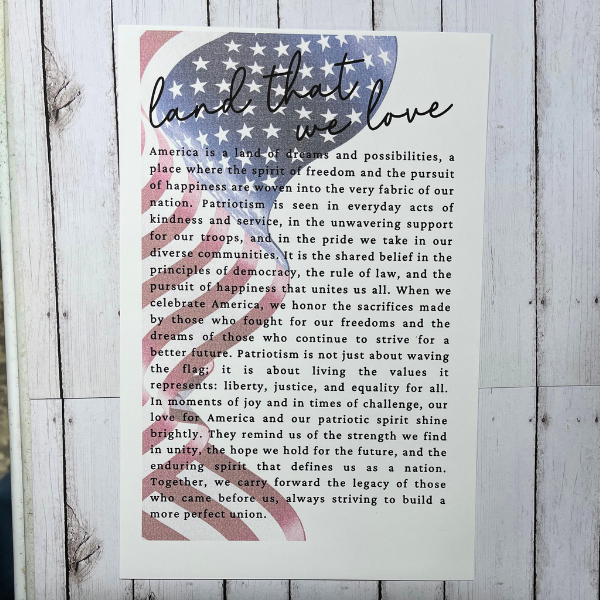 land that
we love
America is a land of dreams and possibilities, a
place where the spirit of freedom and the pursuit
of happiness are woven into the very fabric of our
nation. Patriotism is seen in everyday acts of
kindness and service, in the unwavering support
for our troops, and in the pride we take in our
diverse communities. It is the shared belief in the
principles of democracy, the rule of law, and the
pursuit of happiness that unites us all. When we
celebrate America, we honor the sacrifices made
by those who fought for our freedoms and the
dreams of those who continue to strive for a
better future. Patriotism is not just about waving
the flag; it is about living the values it
represents: liberty, justice, and equality for all.
In moments of joy and in times of challenge, our
love for America and our patriotic spirit shine
brightly. They remind us of the strength we find
in unity, the hope we hold for the future, and the
enduring spirit that defines us as a nation.
Together, we carry forward the legacy of those
who came before us, always striving to build a
more perfect union.